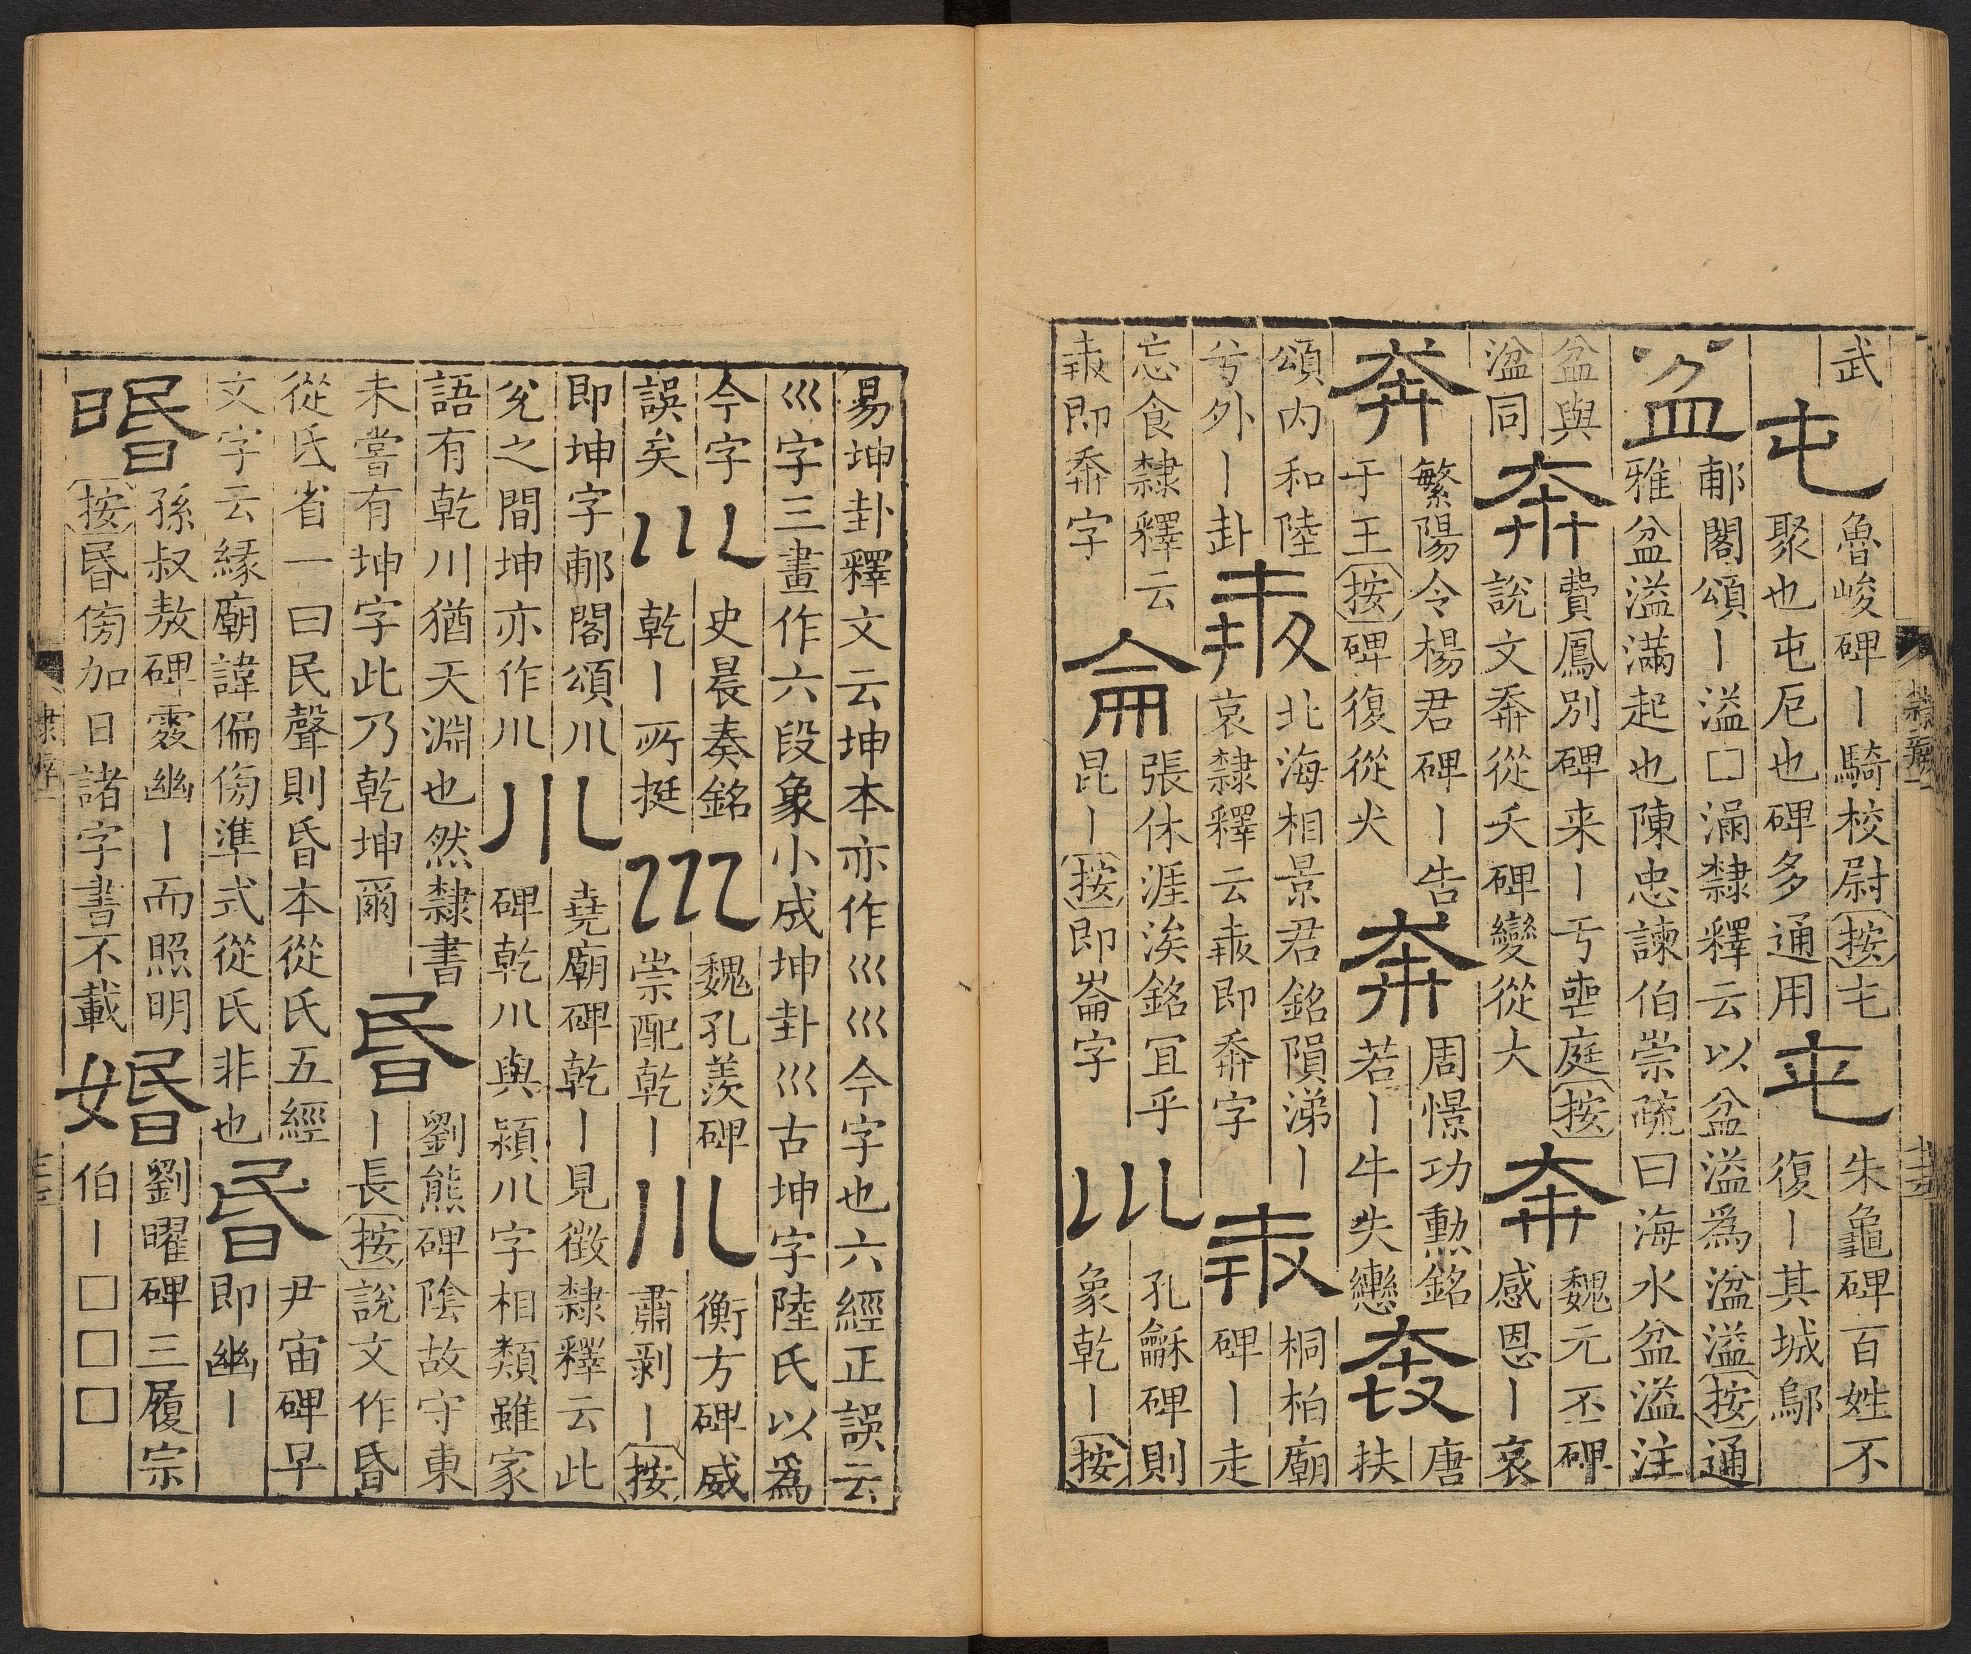 武
屯
魯峻碑丨騎校尉按屯
聚也屯厄也碑多通用
屯
朱龜碑百姓不
復丨其城鄔
盆
郙閣頌丨溢□滿隸釋云以盆溢爲湓溢按通
雅盆溢滿起也陳忠諫伯崇疏曰海水盆溢注
盆與
湓同
奔
費鳳別碑来丨亐喪庭按
說文奔從夭碑變從大
奔
魏元丕碑
感恩丨哀
奔
繁陽令楊君碑丨告
于王按碑復從犬
奔
周憬功勲銘
若丨牛失轡
奔
唐
扶
頌内和陸
兮外丨卦
北海相景君銘隕涕丨
哀隸釋云即奔字
桐柏廟
碑丨走
忘食隸釋云
即奔字
侖
張休涯涘銘冝乎
昆丨按即崙字
川
孔龢碑則
象乾丨按
隸辨一
十五
易坤卦釋文云坤本亦作巛巛今字也六經正誤云
巛字三畫作六段象小成坤卦巛古坤字陸氏以爲
今字
誤矣
川
史晨奏銘
乾丨所挺
巛
魏孔羨碑
崇配乾丨
川
衡方碑威
肅剥丨按
即坤字郙閣頌川
兊之間坤亦作川
川
堯廟碑乾丨見徵隸釋云此
碑乾川與潁川字相類雖家
語有乾川猶天淵也然隸書
未嘗有坤字此乃乾坤爾
昬
劉熊碑陰故守東
丨長按說文作昏
從氐省一曰民聲則昏本從氏五經
文字云緣廟諱偏傍準式從氏非也
昬
尹宙碑早
即幽丨
㬆
孫叔敖碑幽丨而照明
按昬傍加日諸字書不載
婚
劉曜碑三履宗
伯丨□□□